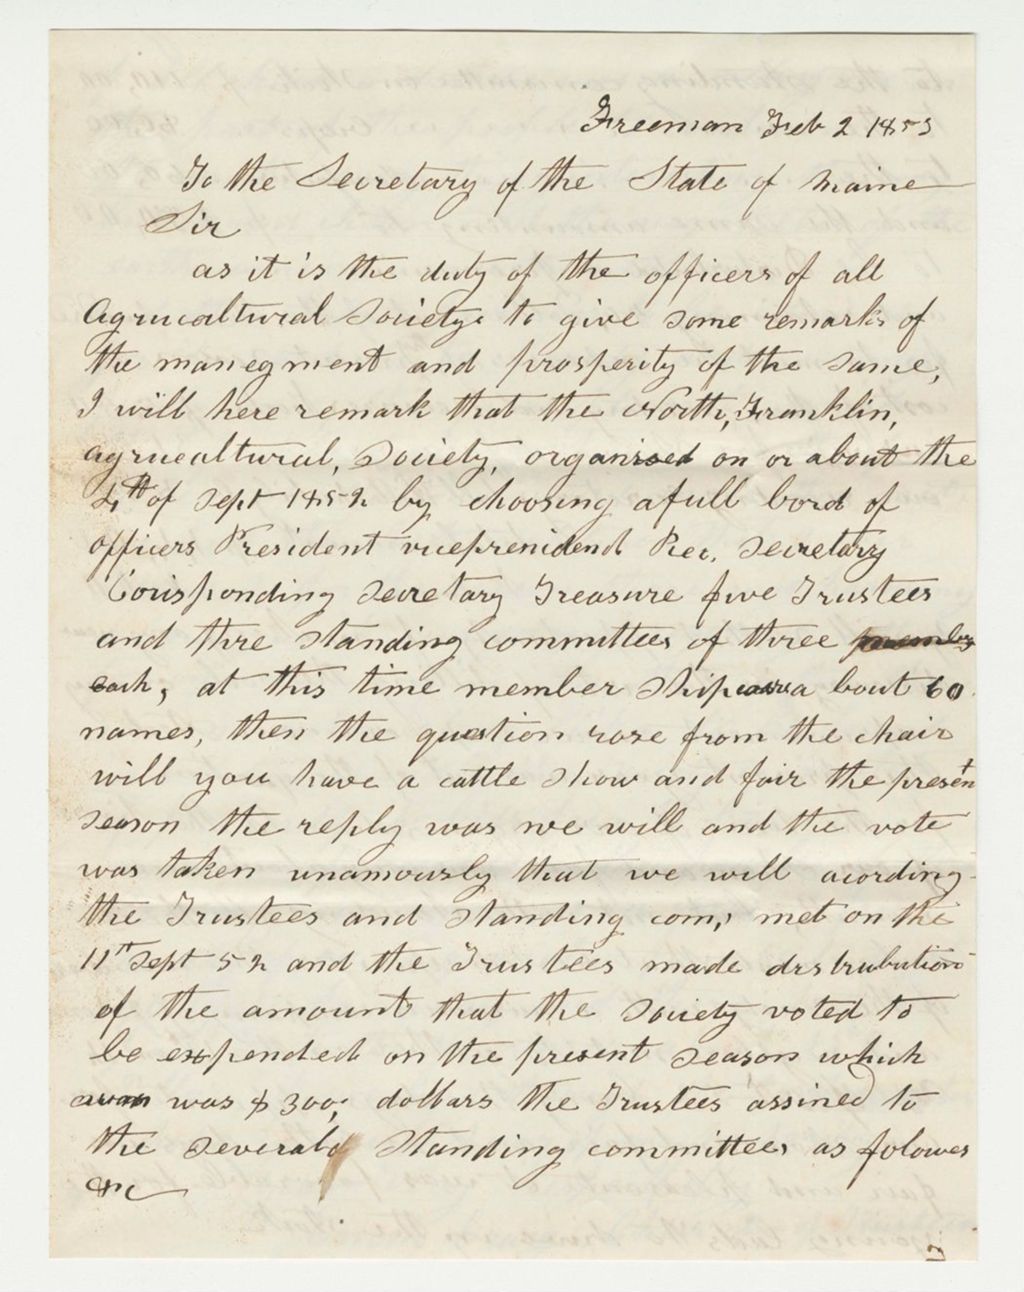 Freeman Feb 2 1853
To the Secretary of the State of Maine
Sir
as it is the duty of the officers of all
Agrucoltural Society to give some remarks of
the manegment and prosperity of the same,
I will here remark that the North, Franklin,
agrucultural, Society, organised on or about the
4th of Sept 1852 by choosing a full bord of
officers President vicepresident Rec. Secretary
Corisponding Secretary Treasure five Trustees
and thre standing committees of three
each, at this time member ship was a bout 60
names, then the question rose from the chair
will you have a cattle show and fair the present
season the reply was we will and the vote
was taken unamously that we will acording
the Trustees and standing com, met on the
11th Sept 52 and the Trustees made distrubution
of the amount that the Society voted to
be expended on the present season which
was $300, dollars the Trustees assined to
the several standing committees as folowes
&c